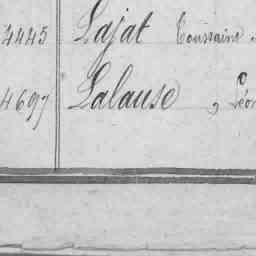 4445 Lajat Toussaint
4697 Lalause , Léon